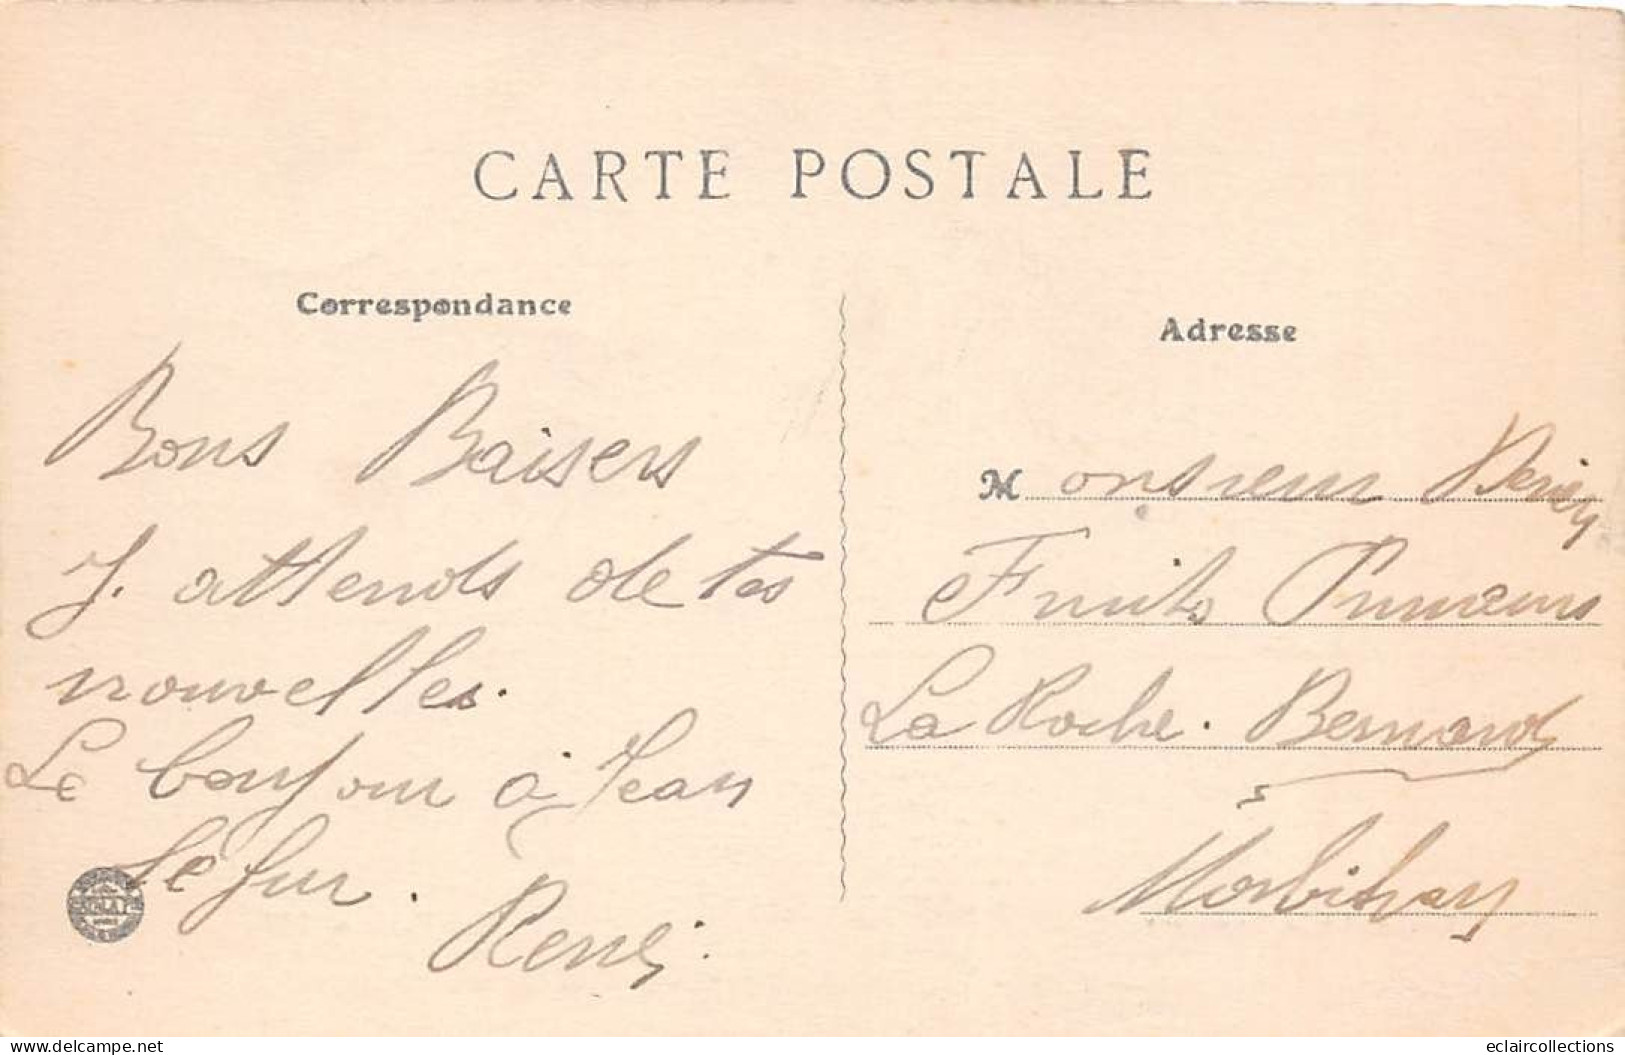 CARTE POSTALE
Correspondance
Bons Baisers
J. attends de tes
nouvelles.
Le bonjour à Jean
Le fur.
René.
Adresse
Monsieur
Fruits Primeurs
La Roche. Bernard
Morbihan
delcampe.net
eclaircollections